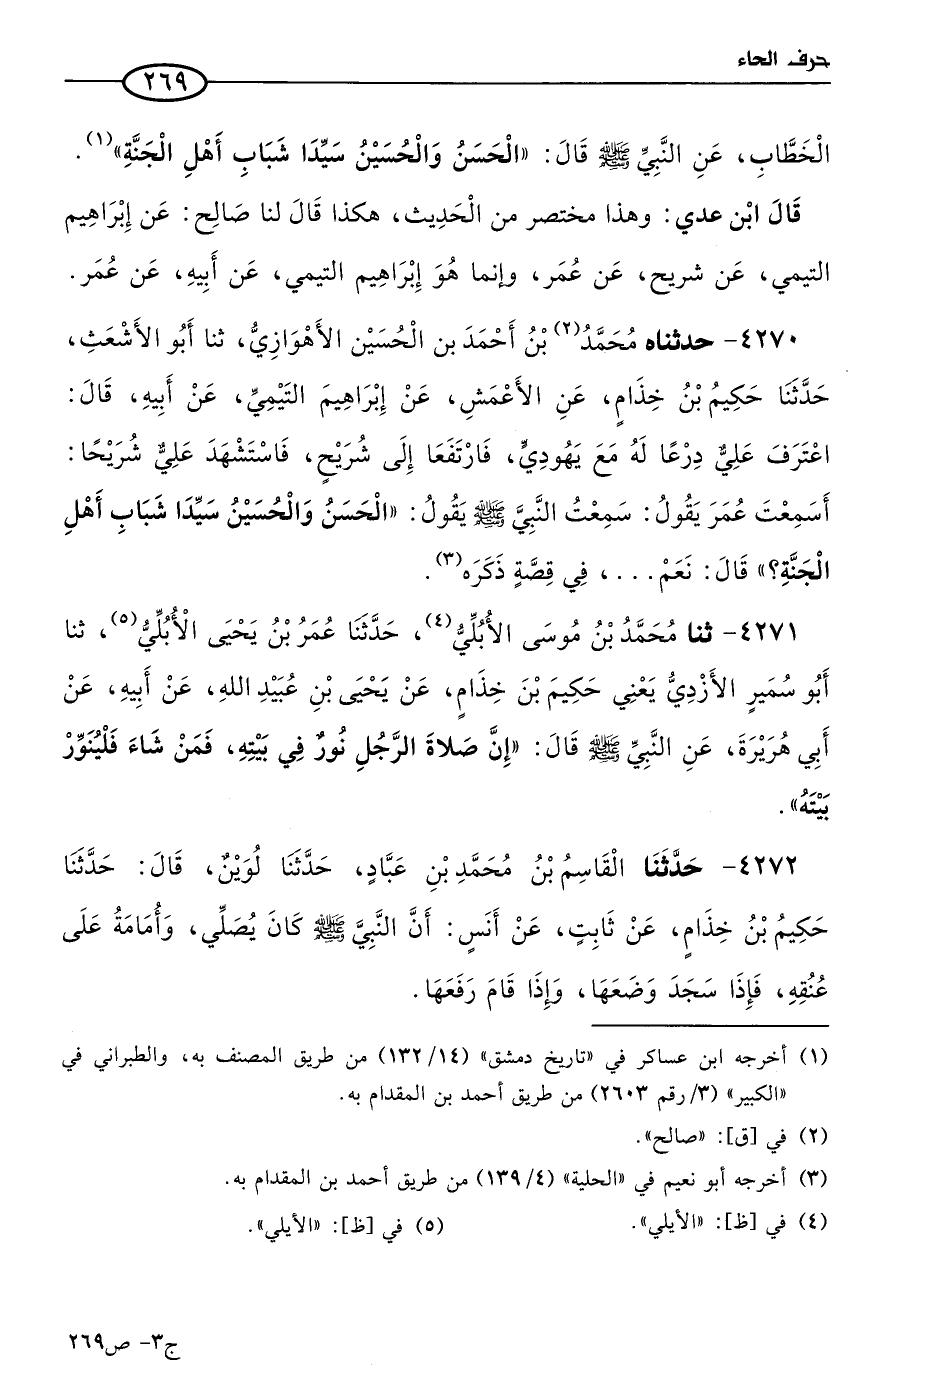 حرف الحاء
٢٦٩
الْخَطَّابِ، عَنِ النَّبِيِّ ﷺ قَالَ: «الْحَسَنُ وَالْحُسَيْنُ سَيِّدَا شَبَابِ أَهْلِ الْجَنَّةِ»(١).
قَالَ ابْن عدي: وهذا مختصر من الْحَدِيث، هكذا قَالَ لنا صَالِح: عَن إِبْرَاهِيم
التيمي، عَن شريح، عَن عُمَر، وإنما هُوَ إِبْرَاهِيم التيمي، عَن أَبِيهِ، عَن عُمَر.
٤٢٧٠- حدثناه مُحَمَّدُ(٢) بْنُ أَحْمَدَ بن الْحُسَيْن الأَهْوَازِيُّ، ثنا أَبُو الأَشْعَثِ،
حَدَّثَنَا حَكِيمُ بْنُ خِذَامٍ، عَنِ الأَعْمَشِ، عَنْ إِبْرَاهِيمَ التَّيْمِيِّ، عَنْ أَبِيهِ، قَالَ:
اعْتَرَفَ عَلِيٌّ دِرْعًا لَهُ مَعَ يَهُودِيٍّ، فَارْتَفَعَا إِلَى شُرَيْحٍ، فَاسْتَشْهَدَ عَلِيٌّ شُرَيْحًا:
أَسَمِعْتَ عُمَرَ يَقُولُ: سَمِعْتُ النَّبِيَّ ﷺ يَقُولُ: «الْحَسَنُ وَالْحُسَيْنُ سَيِّدَا شَبَابِ أَهْلِ
الْجَنَّةِ؟» قَالَ: نَعَمْ...، فِي قِصَّةٍ ذَكَرَه(٣).
٤٢٧١- ثنا مُحَمَّدُ بْنُ مُوسَى الأُبُلِّيُّ(٤)، حَدَّثَنَا عُمَرُ بْنُ يَحْيَى الْأُبُلِّيُّ(٥)، ثنا
أَبُو سُمَيرٍ الأَزْدِيُّ يَعْنِي حَكِيمَ بْنَ خِذَامٍ، عَنْ يَحْيَى بْنِ عُبَيْدِ اللهِ، عَنْ أَبِيهِ، عَنْ
أَبِي هُرَيْرَةَ، عَنِ النَّبِيِّ ﷺ قَالَ: «إِنَّ صَلاةَ الرَّجُلِ نُورٌ فِي بَيْتِهِ، فَمَنْ شَاءَ فَلْيُنَوِّرْ
بَيْتَهُ».
٤٢٧٢- حَدَّثَنَا الْقَاسِمُ بْنُ مُحَمَّدِ بْنِ عَبَّادٍ، حَدَّثَنَا لُوَيْنٌ، قَالَ: حَدَّثَنَا
حَكِيمُ بْنُ خِذَامٍ، عَنْ ثَابِتٍ، عَنْ أَنَسٍ: أَنَّ النَّبِيَّ ﷺ كَانَ يُصَلِّي، وَأُمَامَةُ عَلَى
عُنُقِهِ، فَإِذَا سَجَدَ وَضَعَهَا، وَإِذَا قَامَ رَفَعَهَا.
(١) أخرجه ابن عساكر في «تاريخ دمشق» (١٤/ ١٣٢) من طريق المصنف به، والطبراني في
«الكبير» (٣/ رقم ٢٦٠٣) من طريق أحمد بن المقدام به.
(٢) في [ق]: «صالح».
(٣) أخرجه أبو نعيم في «الحلية» (٤/ ١٣٩) من طريق أحمد بن المقدام به.
(٤) في [ظ]: «الأيلي». (٥) في [ظ]: «الأيلي».
ج٣- ص٢٦٩